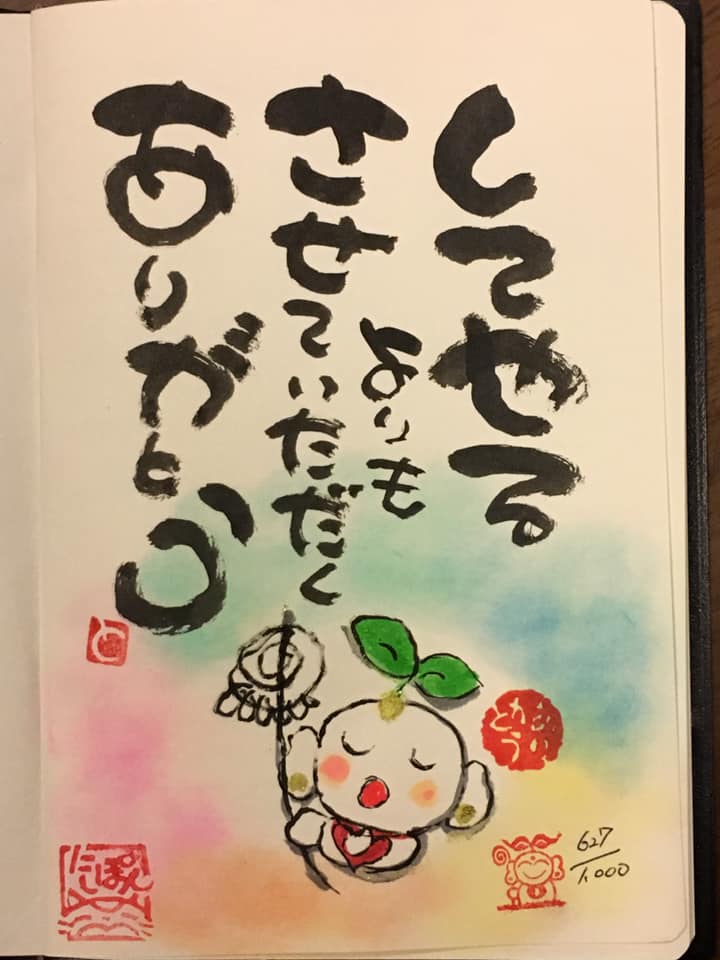 してやる
よりも
させていただく
ありがとう
ありがとう
にっぽん
627/1,000